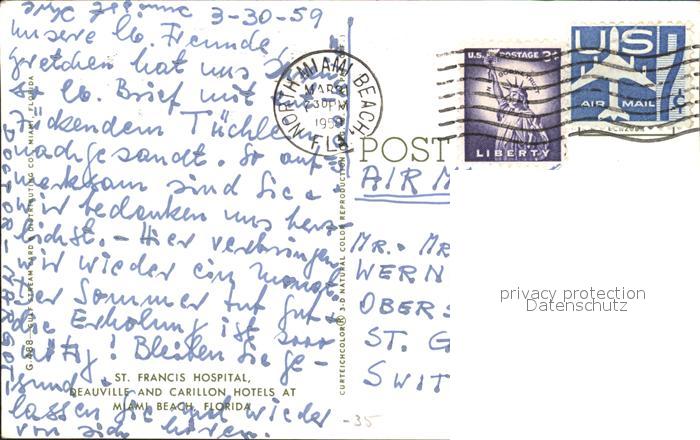 3-30-59
unsere lb. Freunde
Gretchen hat uns Ihren
so lb. Brief mit
Tüchlein
nachgesandt. So auf-
merksam sind Sie &
wir bedanken uns herz-
lichst. - Hier verbringen
wir wieder ein Monat.
Der Sommer tut gut
die Erholung ist
nötig! Bleiben Sie ge-
sund &
lassen Sie gut wieder
von sich hören.
ST. FRANCIS HOSPITAL,
DEAUVILLE AND CARILLON HOTELS AT
MIAMI BEACH, FLORIDA
CURTEICHCOLOR® 3-D NATURAL COLOR REPRODUCTION
NORTH MIAMI BEACH
MAR
230PM
1959
FLA
U.S. POSTAGE 3¢
LIBERTY
US
AIR MAIL
7¢
POST
AIR M
MR. & MR
WERN
OBERS
ST. G
SWIT
privacy protection
Datenschutz
-35